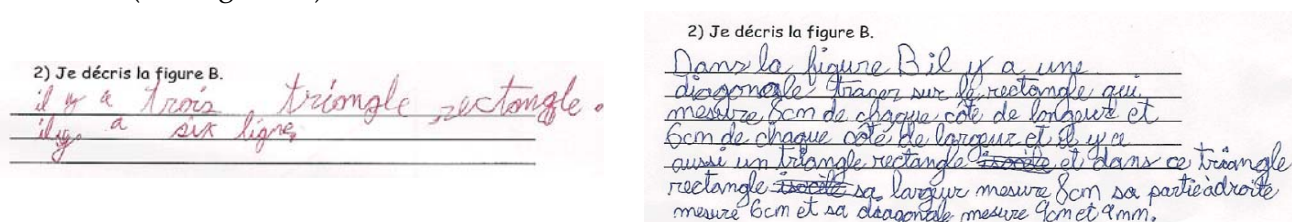 2) Je décris la figure B.
il y a trois triangle rectangle.
il y a six ligne,
2) Je décris la figure B.
Dans la figure B il y a une
diagonale tracer sur le rectangle qui
mesure 8cm de chaque côté de longeur et
6cm de chaque côté de largeur et il y a
aussi un triangle rectangle et dans ce triangle
rectangle sa largeur mesure 8cm sa partie à droite
mesure 6cm et sa diagonale mesure 9cm et 9mm.